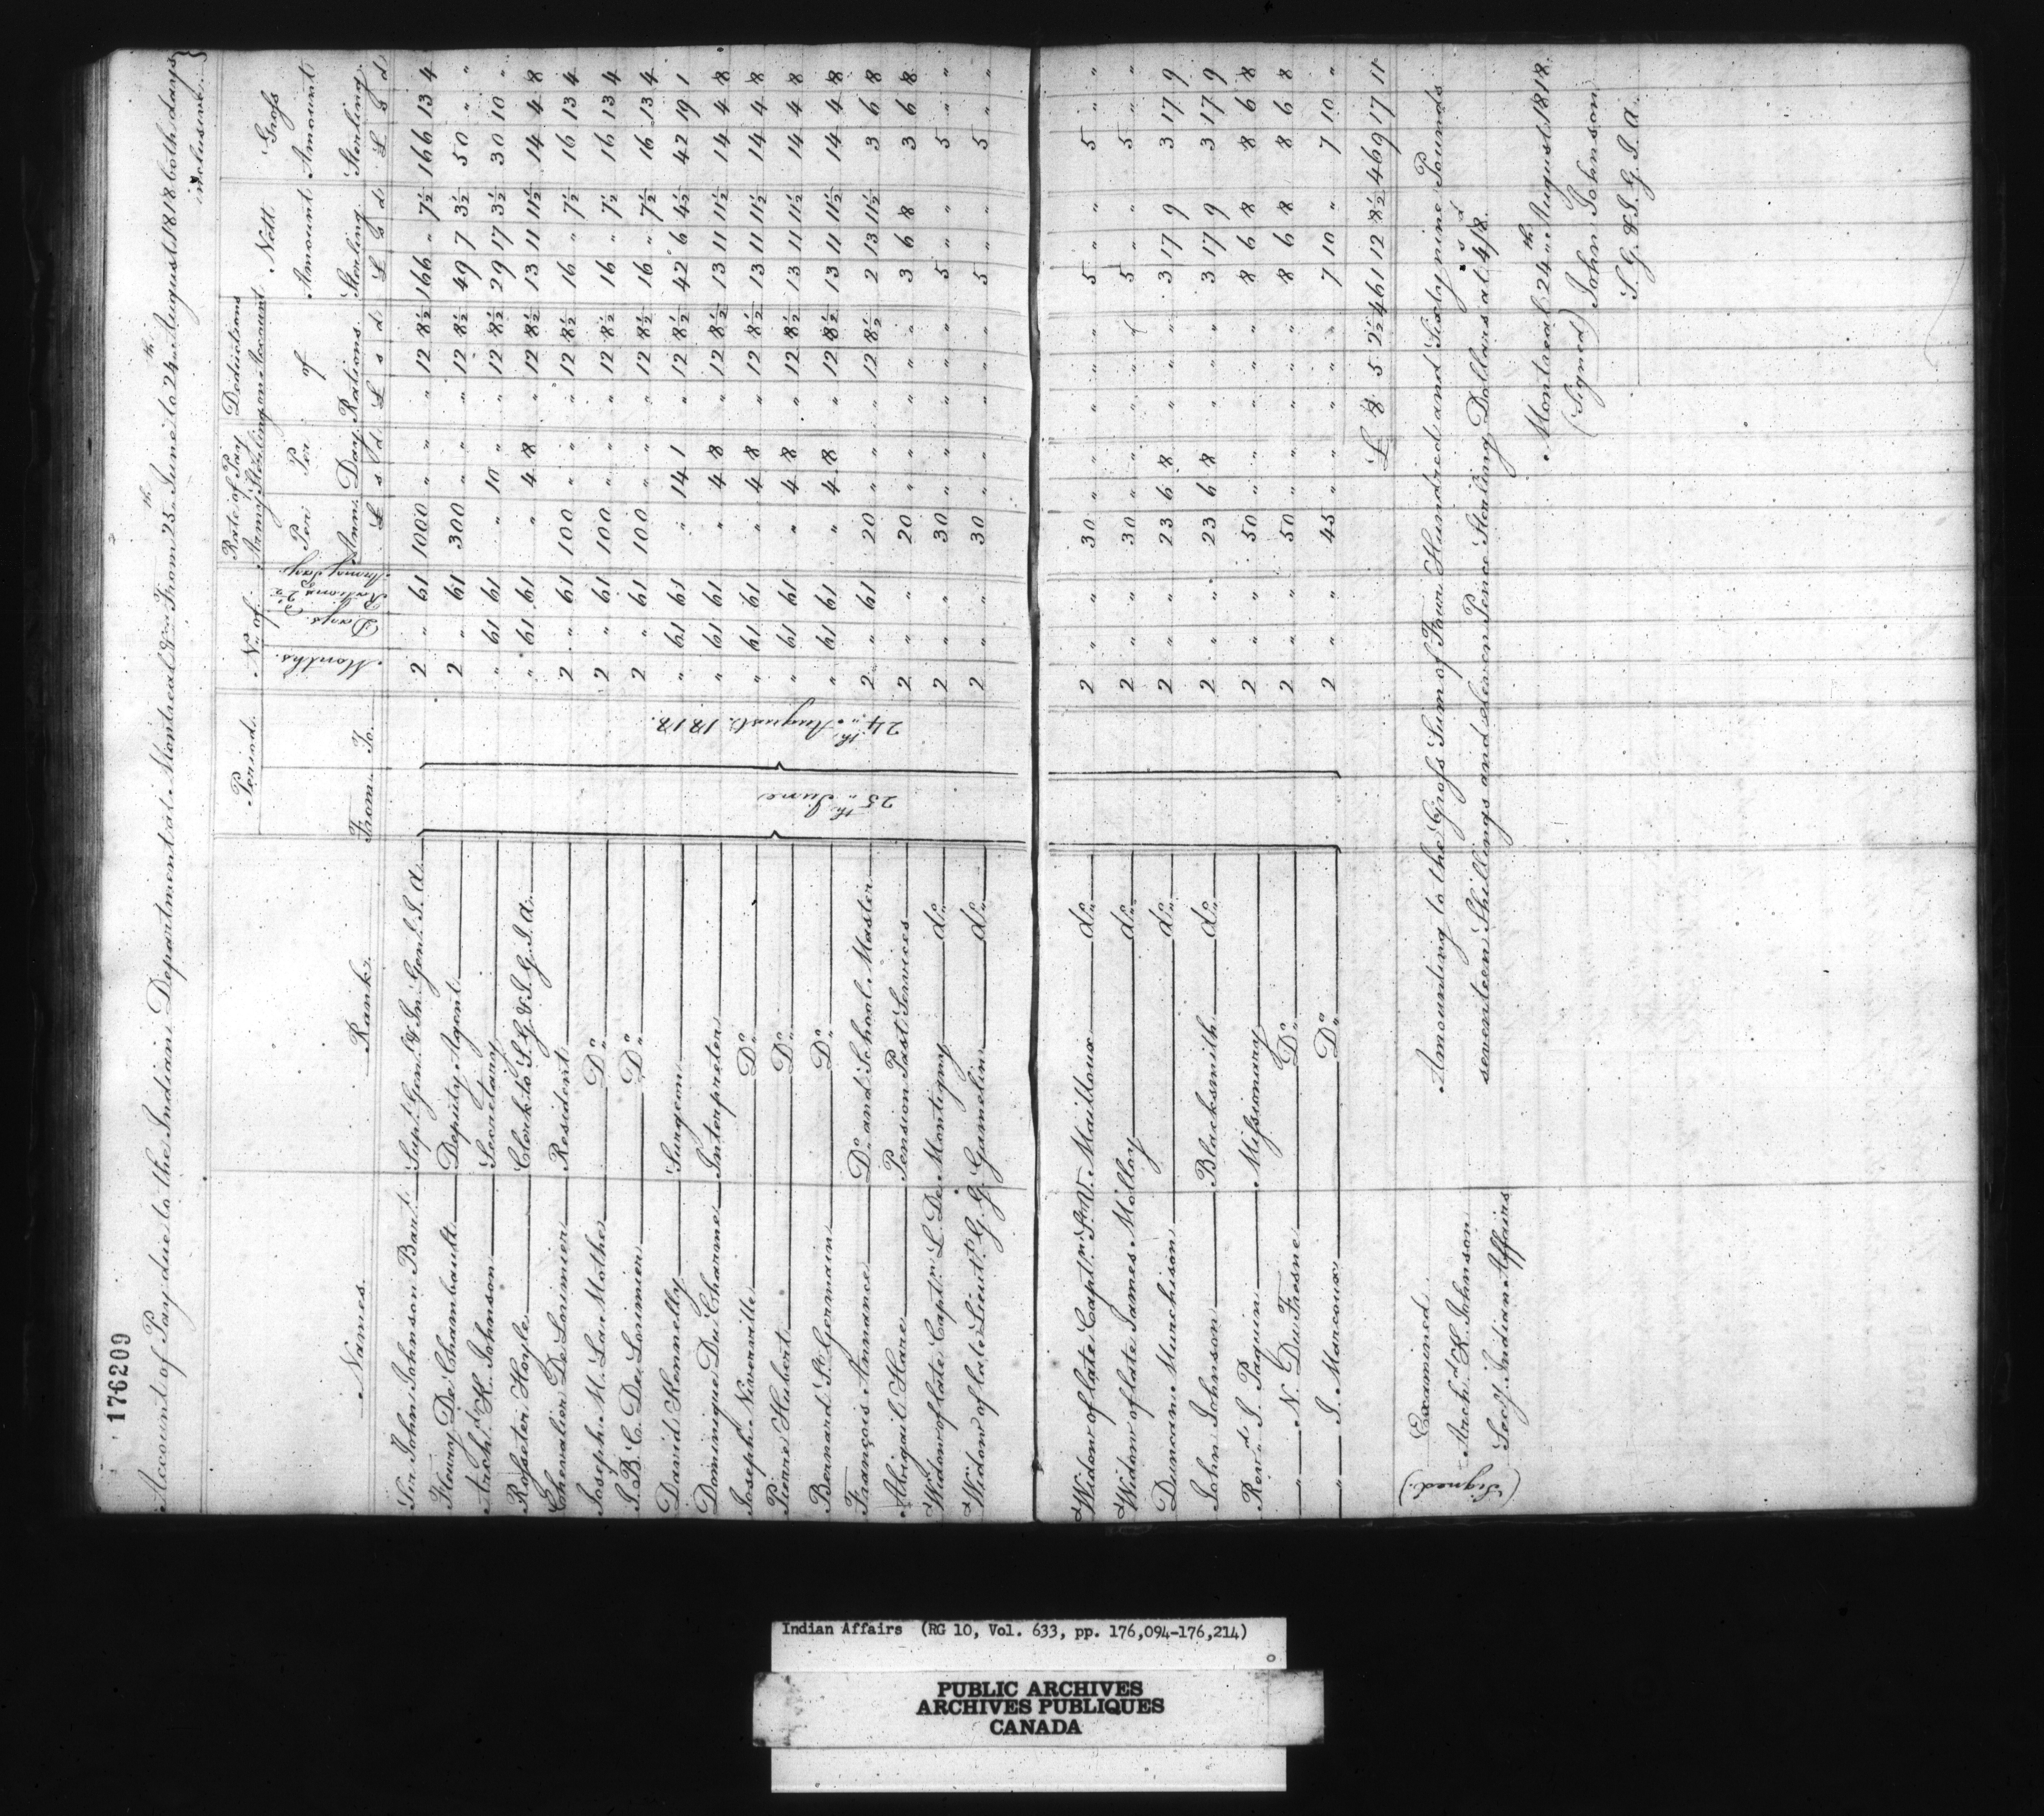 176209
Account of Pay due to the Indian Department at Montreal &c. From 25th June to 24th August 1818 both days inclusive.
Names. Ranks. Period. No. of Rate of Pay Army Sterling Deductions on Account of Rations Nett Amount Sterling. Gross Amount Sterling.
From. To. Months. Days. Rations @ 2½ Army Pay Per Ann. Per Day
£ s d £ s d £ s d £ s d
Sir John Johnson Bart. Supt. Genl. & In. Genl. I. A. 2 " 61 1000 " " " 12 8½ 166 " 7½ 166 13 4
Fleury De Chambault Deputy Agent 2 " 61 300 " " " 12 8½ 49 7 3½ 50 " "
Archd. K. Johnson Secretary " 61 61 " 10 " " 12 8½ 29 17 3½ 30 10 "
Rosseter Hoyle Clerk to S. G. & I. G. I. A. " 61 61 " 4 8 " 12 8½ 13 11 11½ 14 4 8
Chevalier De Lorimier Resident 2 " 61 100 " " " 12 8½ 16 " 7½ 16 13 4
Joseph M. La Mothe Do. 2 " 61 100 " " " 12 8½ 16 " 7½ 16 13 4
J. B. C. De Lorimier Do. 2 " 61 100 " " " 12 8½ 16 " 7½ 16 13 4
David Kennelly Surgeon " 61 61 " 14 1 " 12 8½ 42 6 4½ 42 19 1
Dominique Du Charme Interpreter " 61 61 " 4 8 " 12 8½ 13 11 11½ 14 4 8
Joseph Niverville Do. " 61 61 " 4 8 " 12 8½ 13 11 11½ 14 4 8
Pierre Hubert Do. " 61 61 " 4 8 " 12 8½ 13 11 11½ 14 4 8
Bernard St. Germain Do. " 61 61 " 4 8 " 12 8½ 13 11 11½ 14 4 8
François Annance Do. and School Master 2 " 61 20 " " " 12 8½ 2 13 11½ 3 6 8
Abigail Hare Pension Past Services 2 " " 20 " " " " " 3 6 8 3 6 8
Widow of late Captn. L. De Montigny do. 2 " " 30 " " " " " 5 " " 5 " "
Widow of late Lieut. G. G. Gamelin do. 2 " " 30 " " " " " 5 " " 5 " "
25th June
24th August 1818.
Widow of late Captn. St. V. Mailloux do. 2 " " 30 " " " " " 5 " " 5 " "
Widow of late James Molloy do. 2 " " 30 " " " " " 5 " " 5 " "
Duncan Murchison do. 2 " " 23 6 8 " " " 3 17 9 3 17 9
John Johnson Blacksmith do. 2 " " 23 6 8 " " " 3 17 9 3 17 9
Revd. J. Paquin Missionary 2 " " 50 " " " " " 8 6 8 8 6 8
" N. Du Fresne Do. 2 " " 50 " " " " " 8 6 8 8 6 8
" J. Marcoux Do. 2 " " 45 " " " " " 7 10 " 7 10 "
£ 8 5 2½ 461 12 8½ 469 17 11
Amounting to the Gross Sum of Four Hundred and Sixty nine Pounds
seventeen Shillings and eleven Pence Sterling Dollars at 4s/8d.
Montreal 24th August 1818.
(Signed) John Johnson
S. G. & I. G. I. A.
Examined
(Signed.) Archd. K. Johnson
Secy. Indian Affairs
Indian Affairs (RG 10, Vol. 633, pp. 176,094-176,214)
PUBLIC ARCHIVES
ARCHIVES PUBLIQUES
CANADA